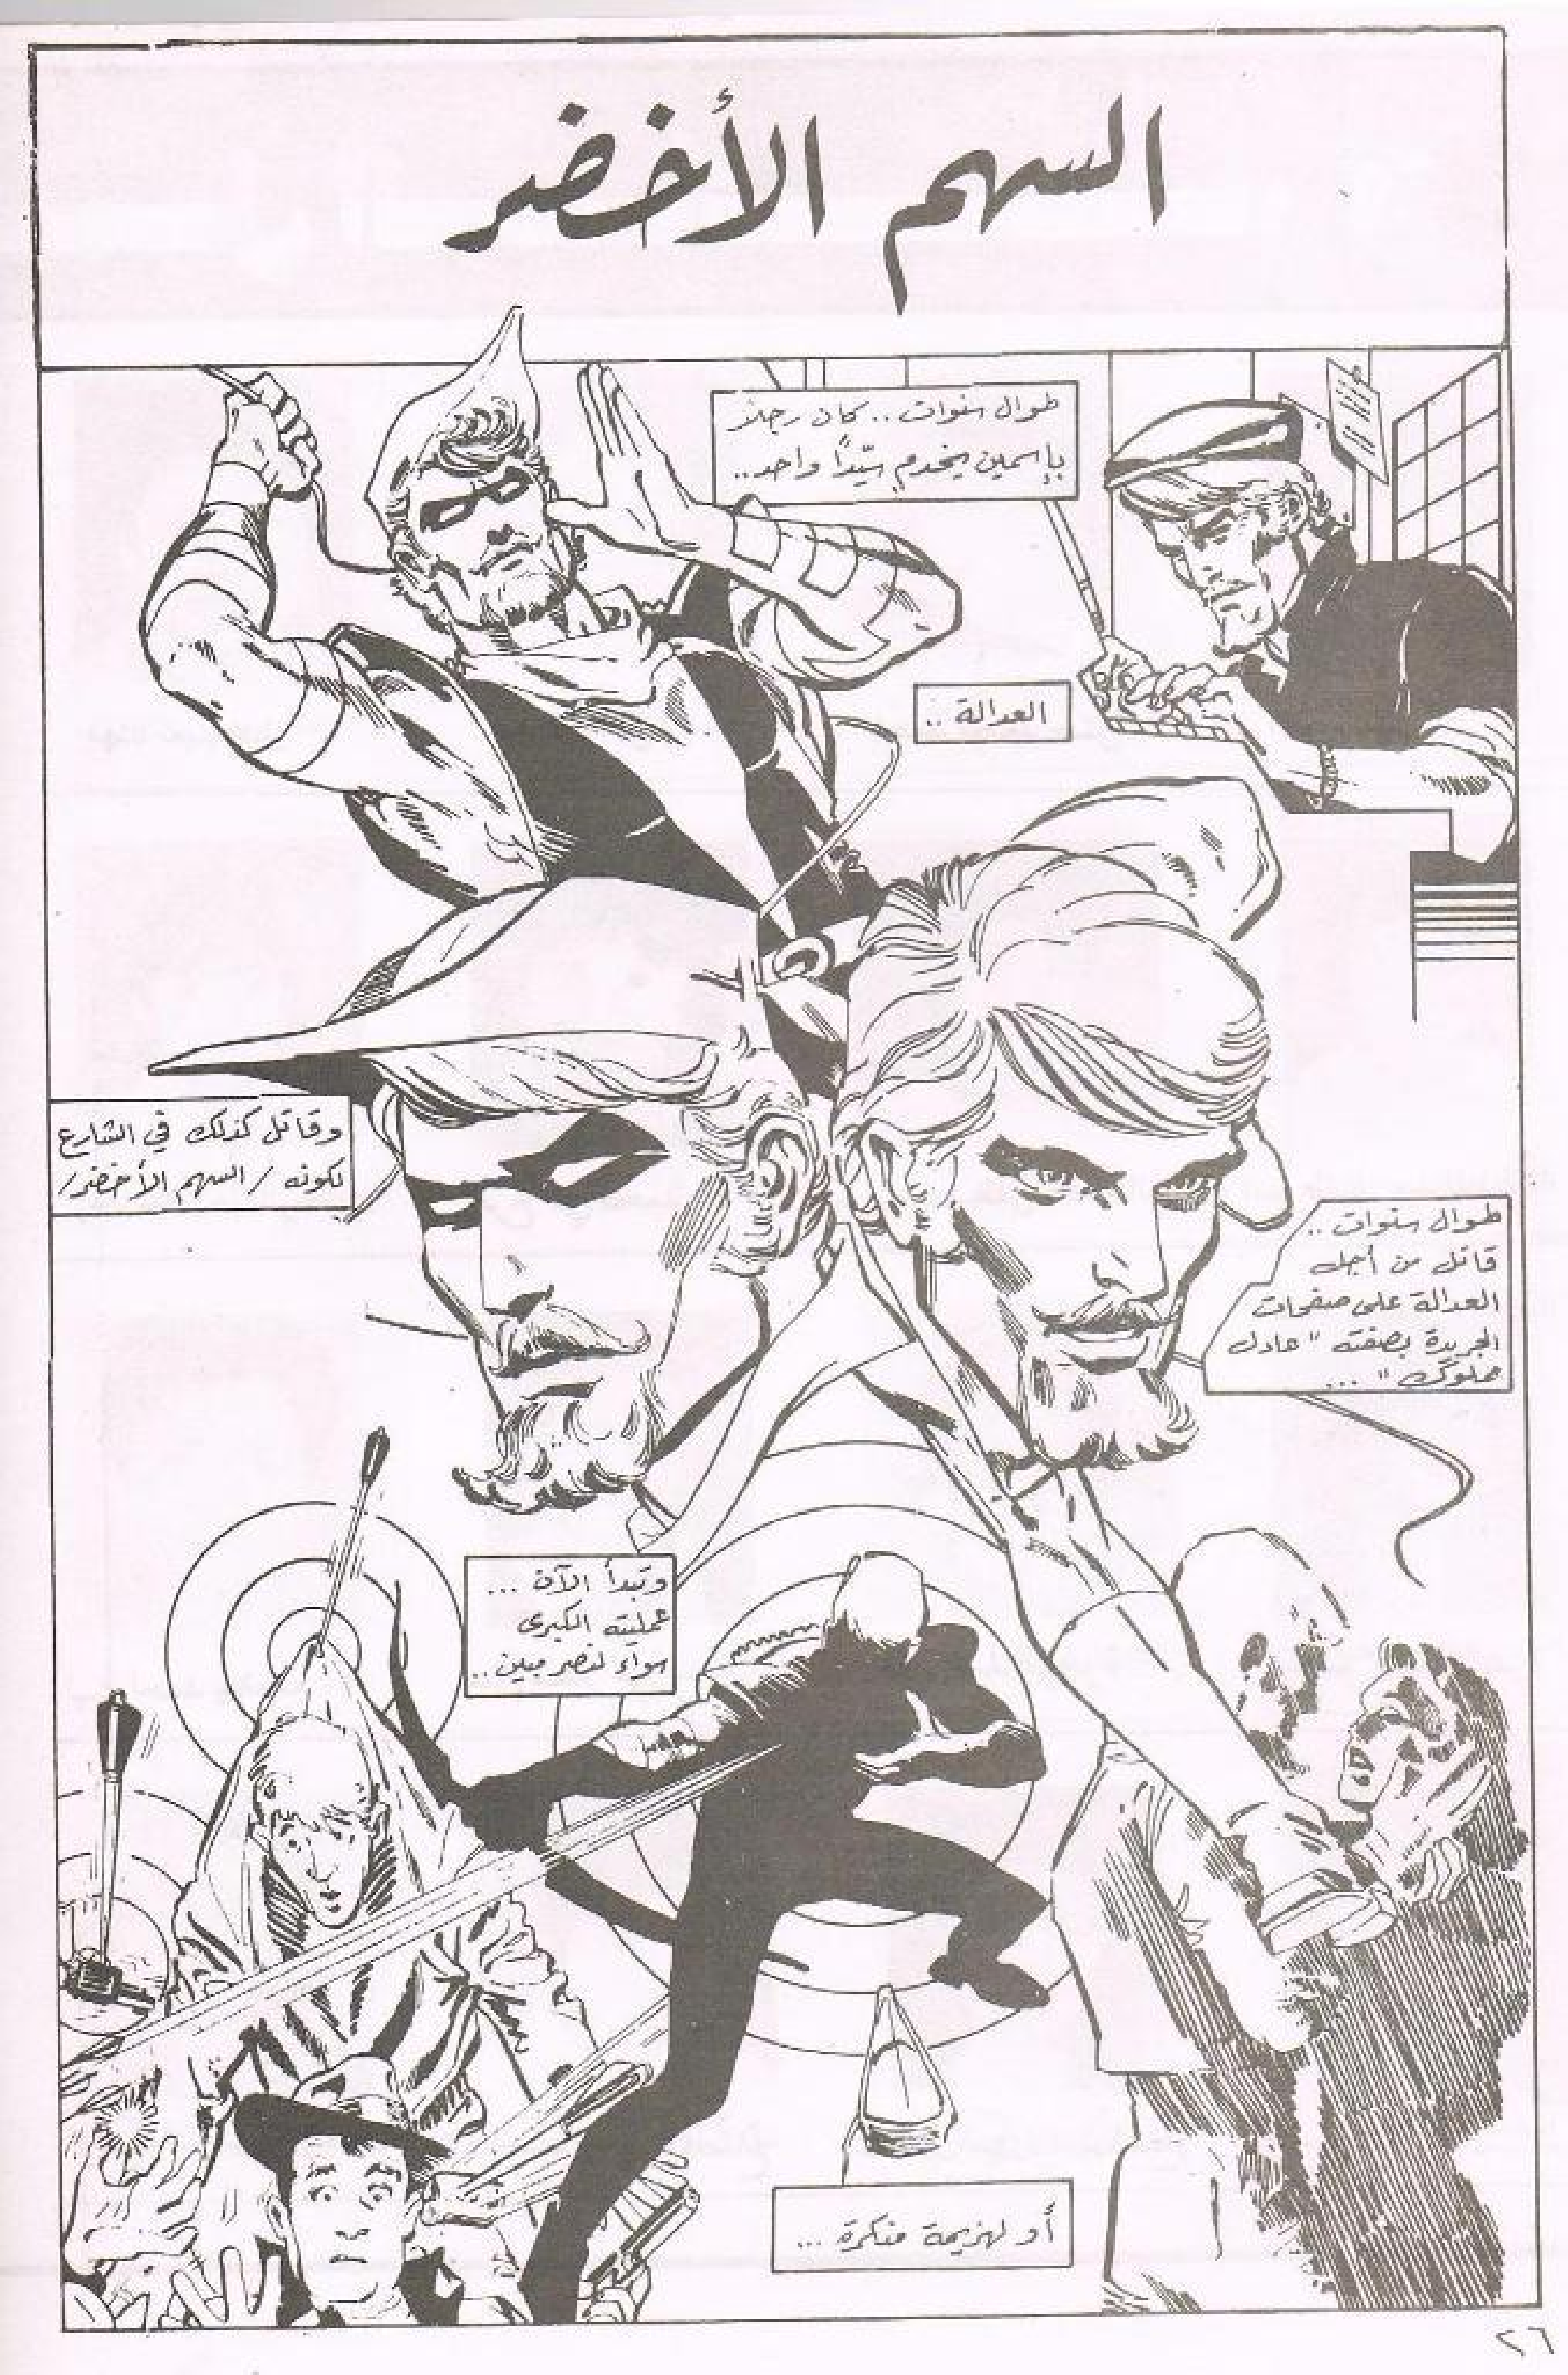 السهم الأخضر
طوال سنوات .. كان رجلاً
بإسمين يخدم سيّداً واحد ..
العدالة ..
وقاتل كذلك في الشارع
لكونه / السهم الأخضر /
طوال سنوات ..
قاتل من أجل
العدالة على صفحات
الجريدة بصفته " عادل
صلوك " ...
وتبدأ الآن ...
عمليته الكبرى
سواء لنصر مبين ..
أو لهزيمة منكرة ...
٢٦